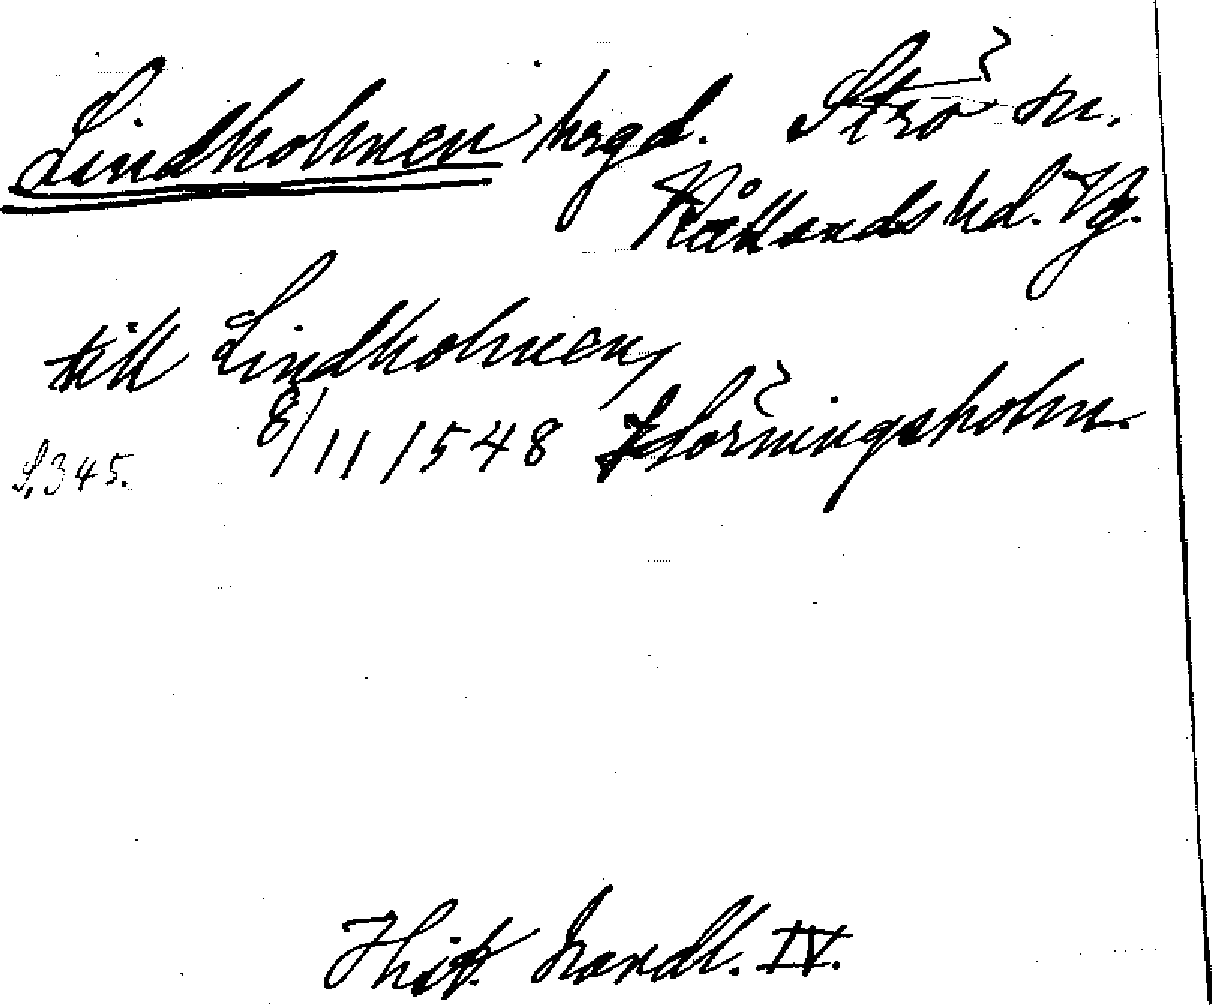 Lindholmen hrgd. Strö sn.
Kållands hd. Vg.
till Lindholmen,
8/11 1548 Hörningsholm.
S. 345.
Hist. handl. IV.